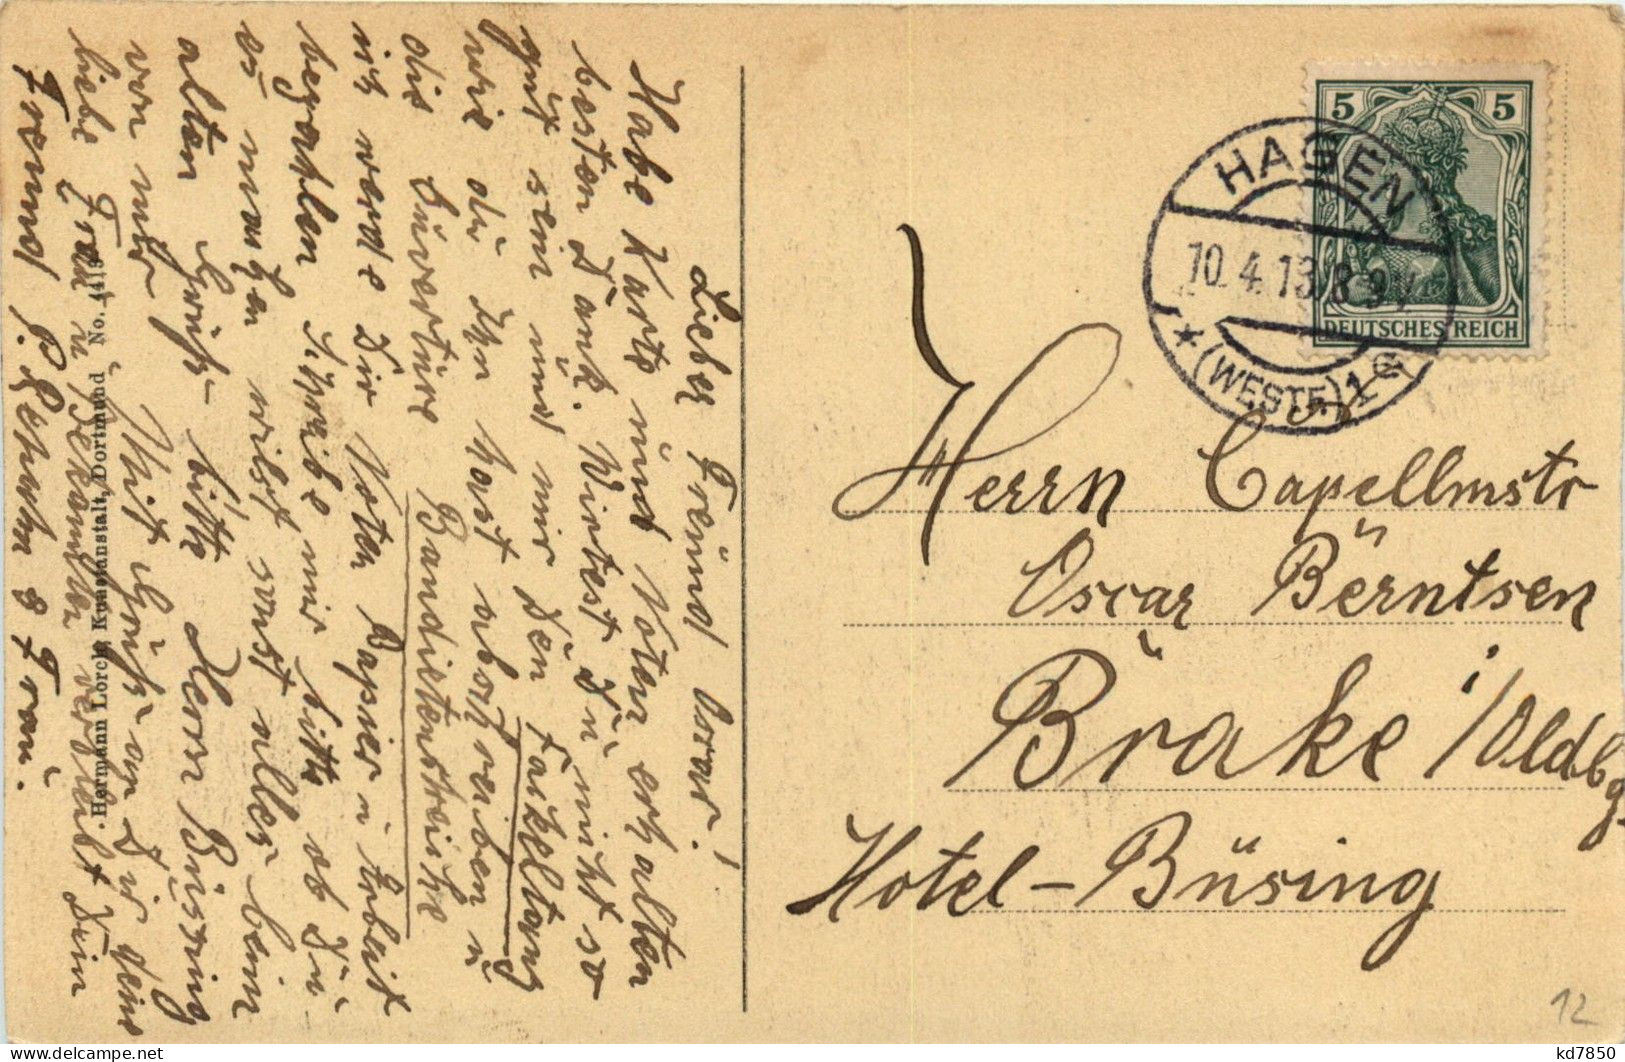 Lieber Freund Oscar!
Habe Karte und Noten erhalten
besten Dank. Wirtest Du nicht so
gut sein und mir den Fackeltanz
wie du ihn hast abschreiben u
die Huvertüre Banditenstreiche
ich werde Dir Noten Papier u Arbeit
bezahlen Schreibe mir bitte ob Du
es machen willst sonst alles beim
alten Gruß bitte Herr Büsing
von mir Mit Gruß an Dir deine
liebe Frau u Bekannten verbleibt Dein
Freund P. & Frau.
Hermann Lorch, Kunstanstalt, Dortmund No.
5 5
DEUTSCHES REICH
HAGEN
10.4.13.8-9V
* (WESTF.) 1 G
Herrn Capellmstr
Oscar Berntsen
Brake i/Oldbg.
Hotel-Büsing
12
kd7850